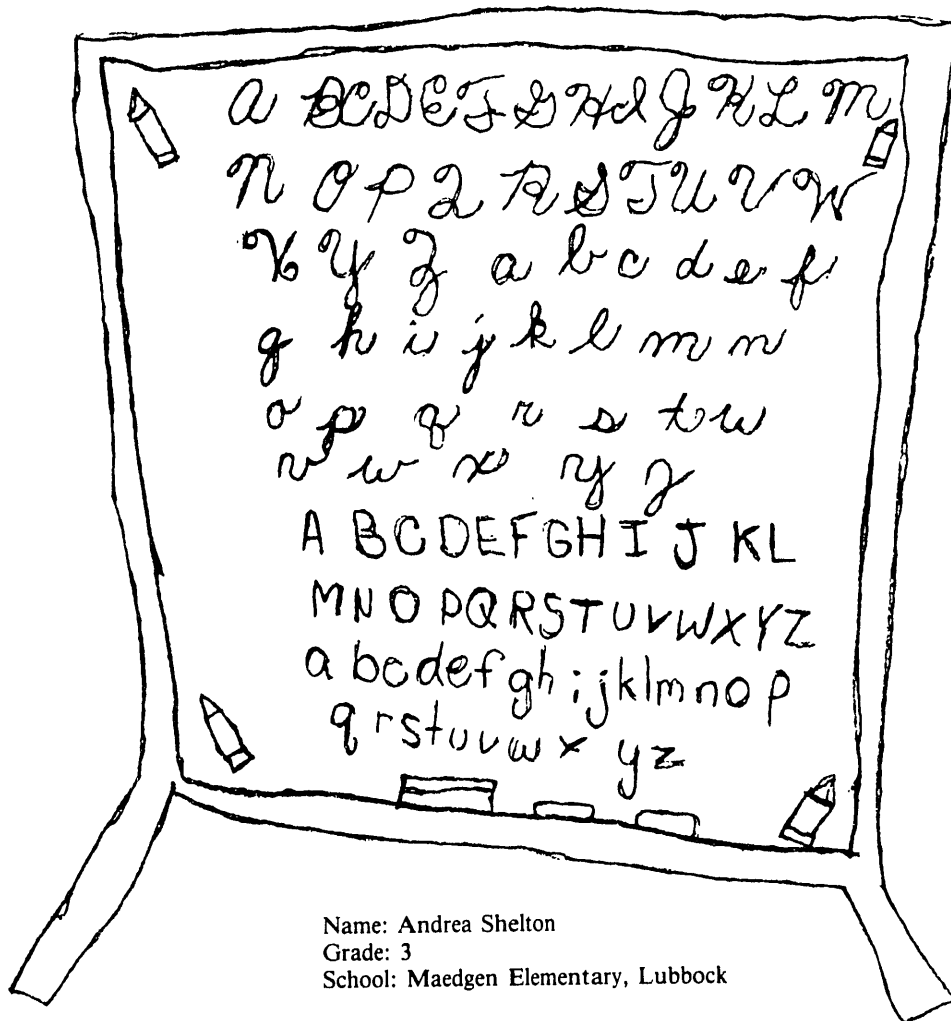 A B C D E F G H I J K L M
N O P Q R S T U V W
X Y Z a b c d e f
g h i j k l m n
o p q r s t u
v w x y z
A B C D E F G H I J K L
M N O P Q R S T U V W X Y Z
a b c d e f g h i j k l m n o p
q r s t u v w x y z
Name: Andrea Shelton
Grade: 3
School: Maedgen Elementary, Lubbock